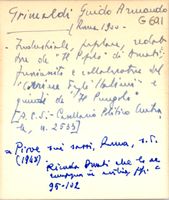 Grimaldi Guido Armando
G 621
(Roma 1900-
- Industriale, pubbl., redat
tore de "Il Popolo" di Donati,
funzionario e collaboratore del
"Corriere degli Italiani" e
quindi de "Il Pungolo"
[A.C.S. - Casellario Politico Centra
le, n. 2533]
= Piove sui sassi, Roma, s.d.
(1967) Ricorda Donati che lo ac
compagnò in esilio, pp.
95-102